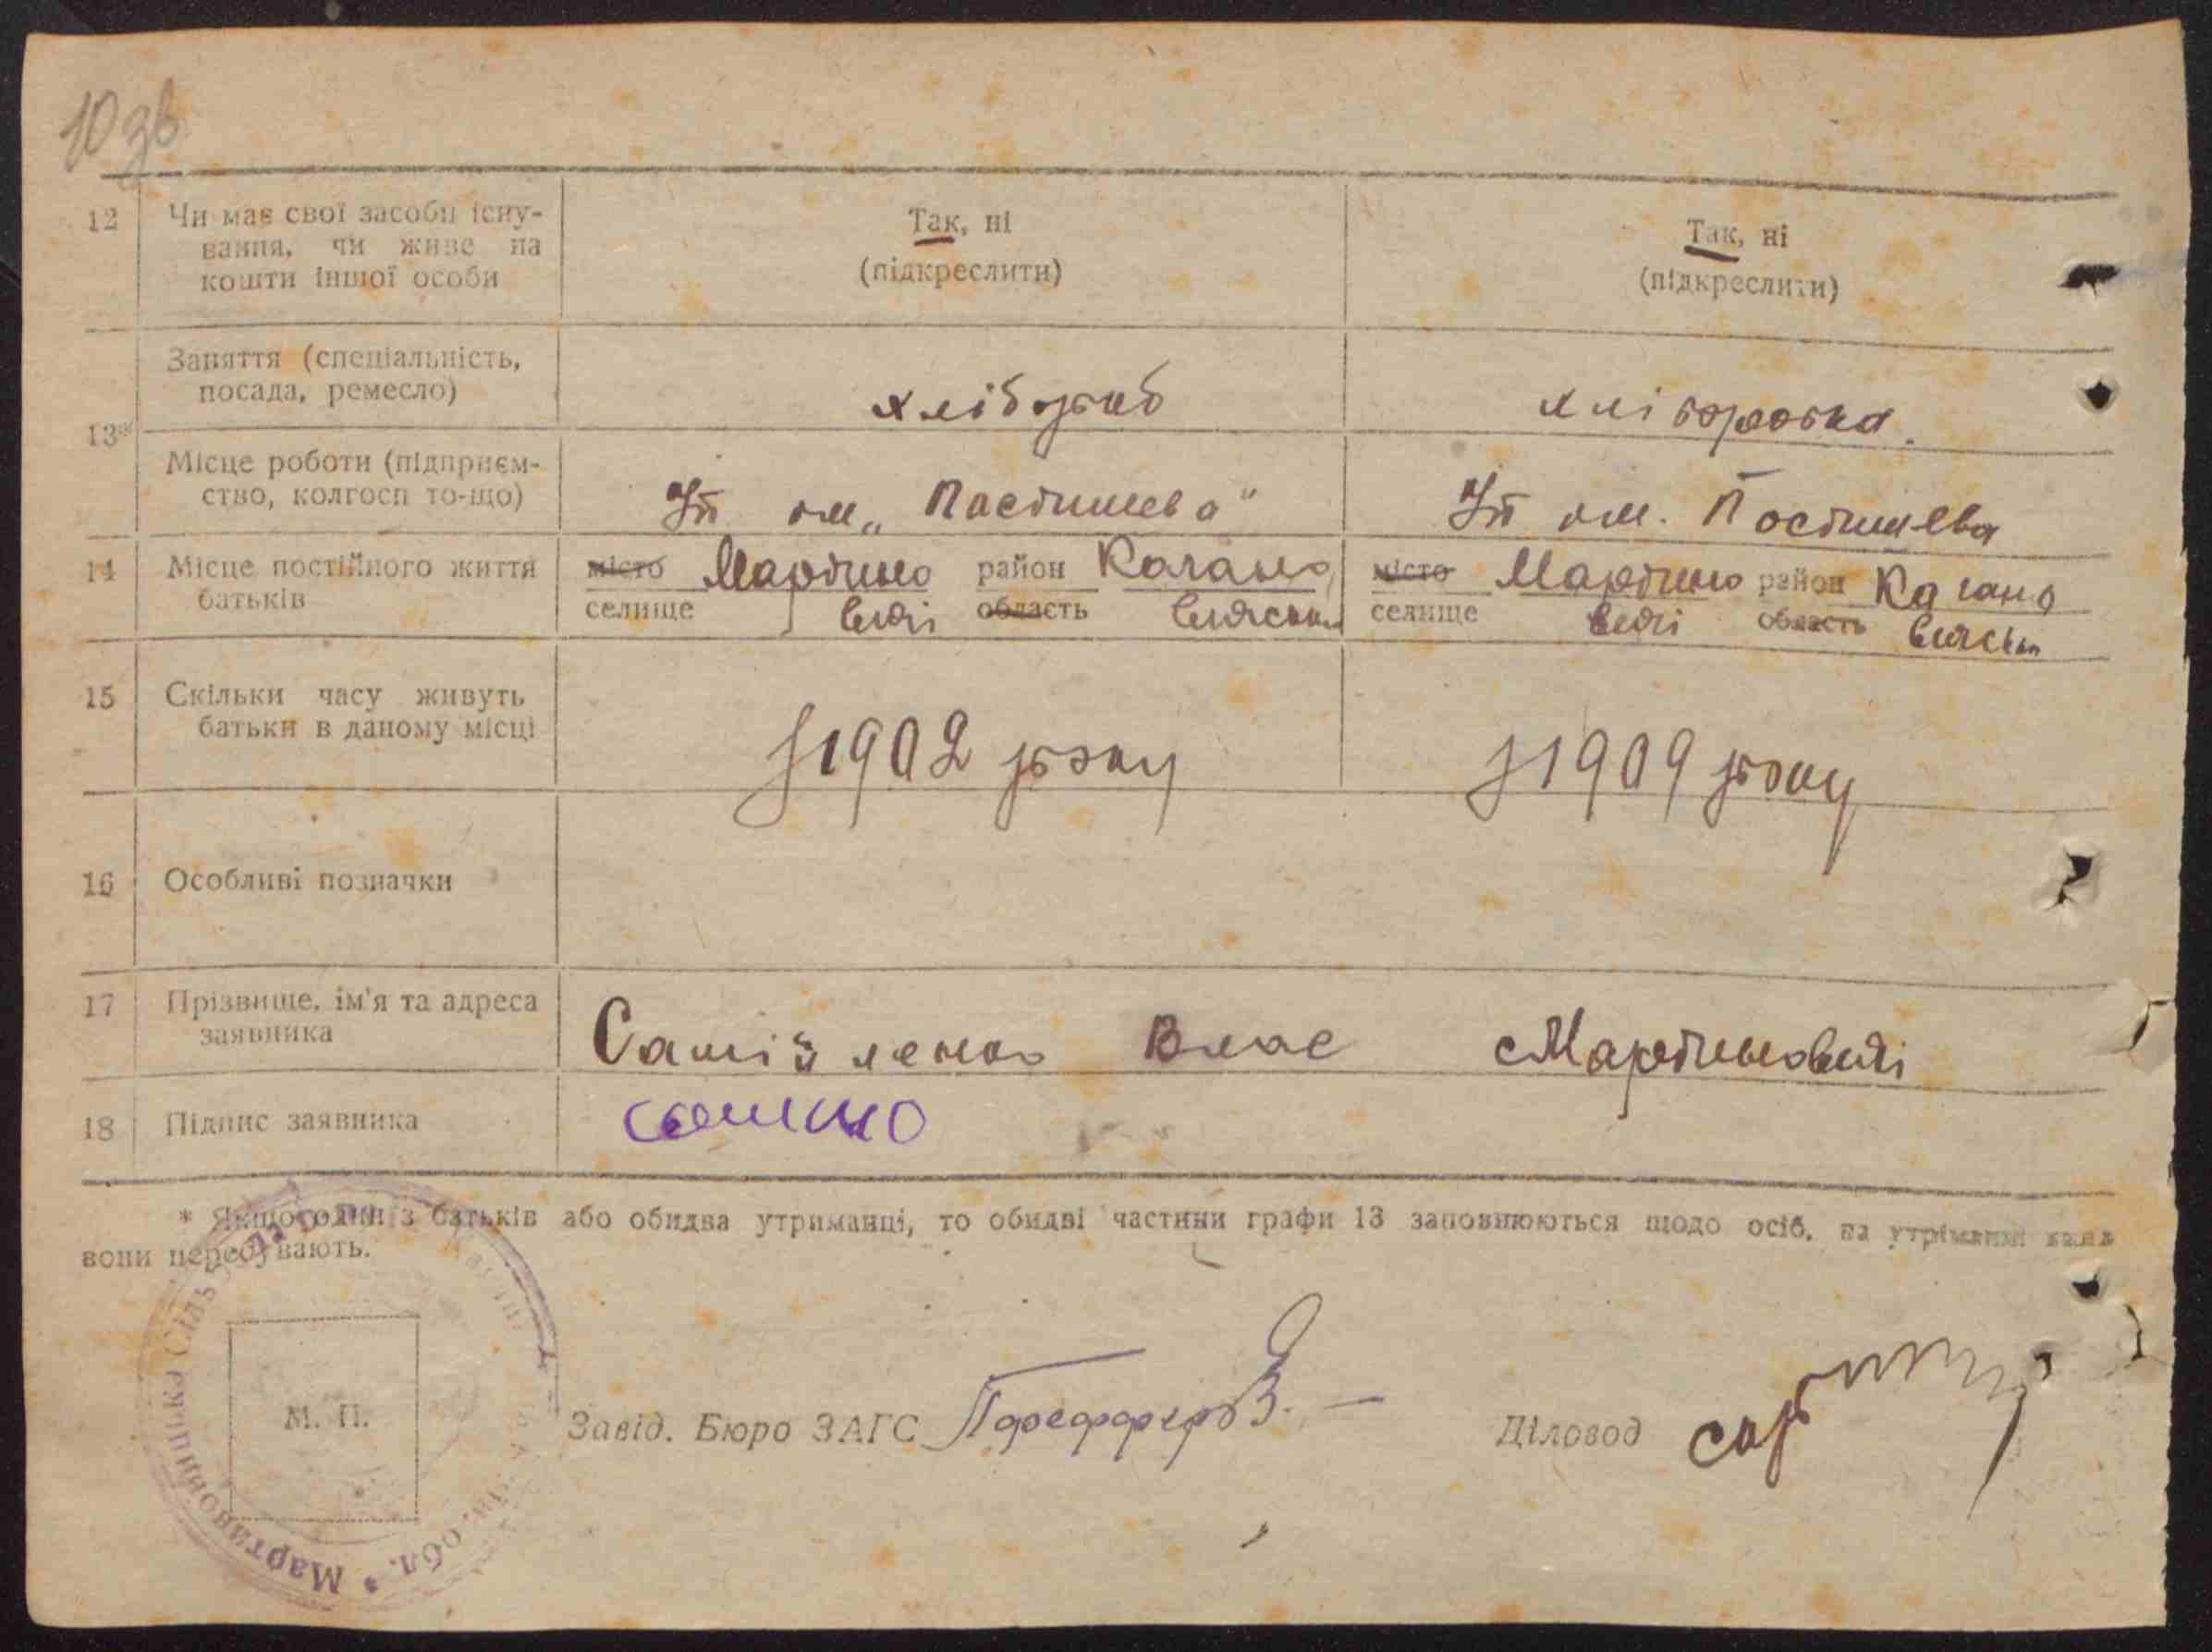 10 зв
12 Чи має свої засоби існу-
вання, чи живе на
кошти іншої особи
Так, ні
(підкреслити)
Так, ні
(підкреслити)
13*
Заняття (спеціальність,
посада, ремесло)
хлібороб
хліборобка.
Місце роботи (підприєм-
ство, колгосп то-що)
ім. „Постишева"
ім. Постишева
14 Місце постійного життя
батьків
місто
селище
Мартино
вичі
район
область
Кагано
вичськ
місто
селище
Мартино
вичі
район
область
Кагано
вичськ
15 Скільки часу живуть
батьки в даному місці
з 1902 року
з 1909 року
16 Особливі позначки
17 Прізвище, ім'я та адреса
заявника
Самійленко Влас Мартиновичі
18 Підпис заявника
* Якщо один з батьків або обидва утриманці, то обидві частини графи 13 заповнюються щодо осіб, на утриманні яких
вони перебувають.
М. П.
Мартиновицька Сіль
обл.
Завід. Бюро ЗАГС
Діловод